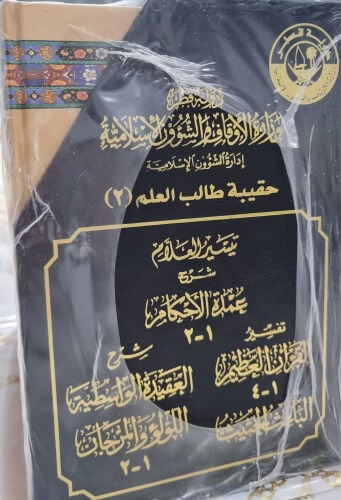 دولة قطر
وزارة الأوقاف والشؤون الإسلامية
إدارة الشؤون الإسلامية
حقيبة طالب العلم (٢)
تيسير العلام
شرح
عمدة الأحكام
١-٢
تفسير
القرآن العظيم
١-٤
الباعث الحثيث
شرح
العقيدة الواسطية
اللؤلؤ والمرجان
١-٢